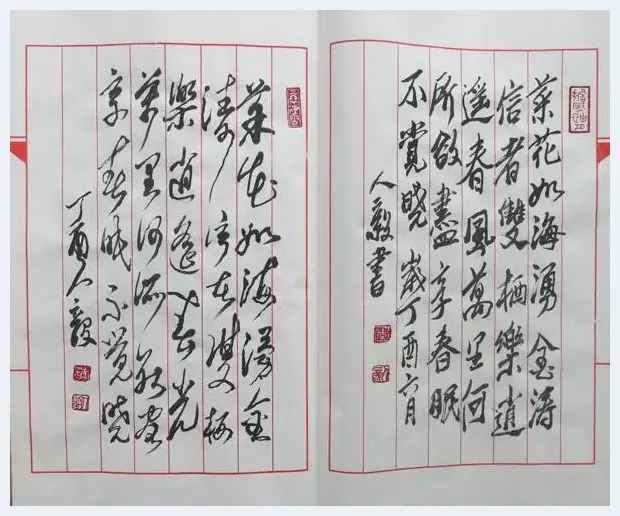 菜花如海湧金濤
信者雙栖樂逍
遙春風萬里何
所欲盡享春眠
不覺曉歲丁酉六月
人毅書
菜花如海湧金
濤信者雙栖
樂逍遙春風
萬里何所欲盡
享春眠不覺曉
丁酉人毅